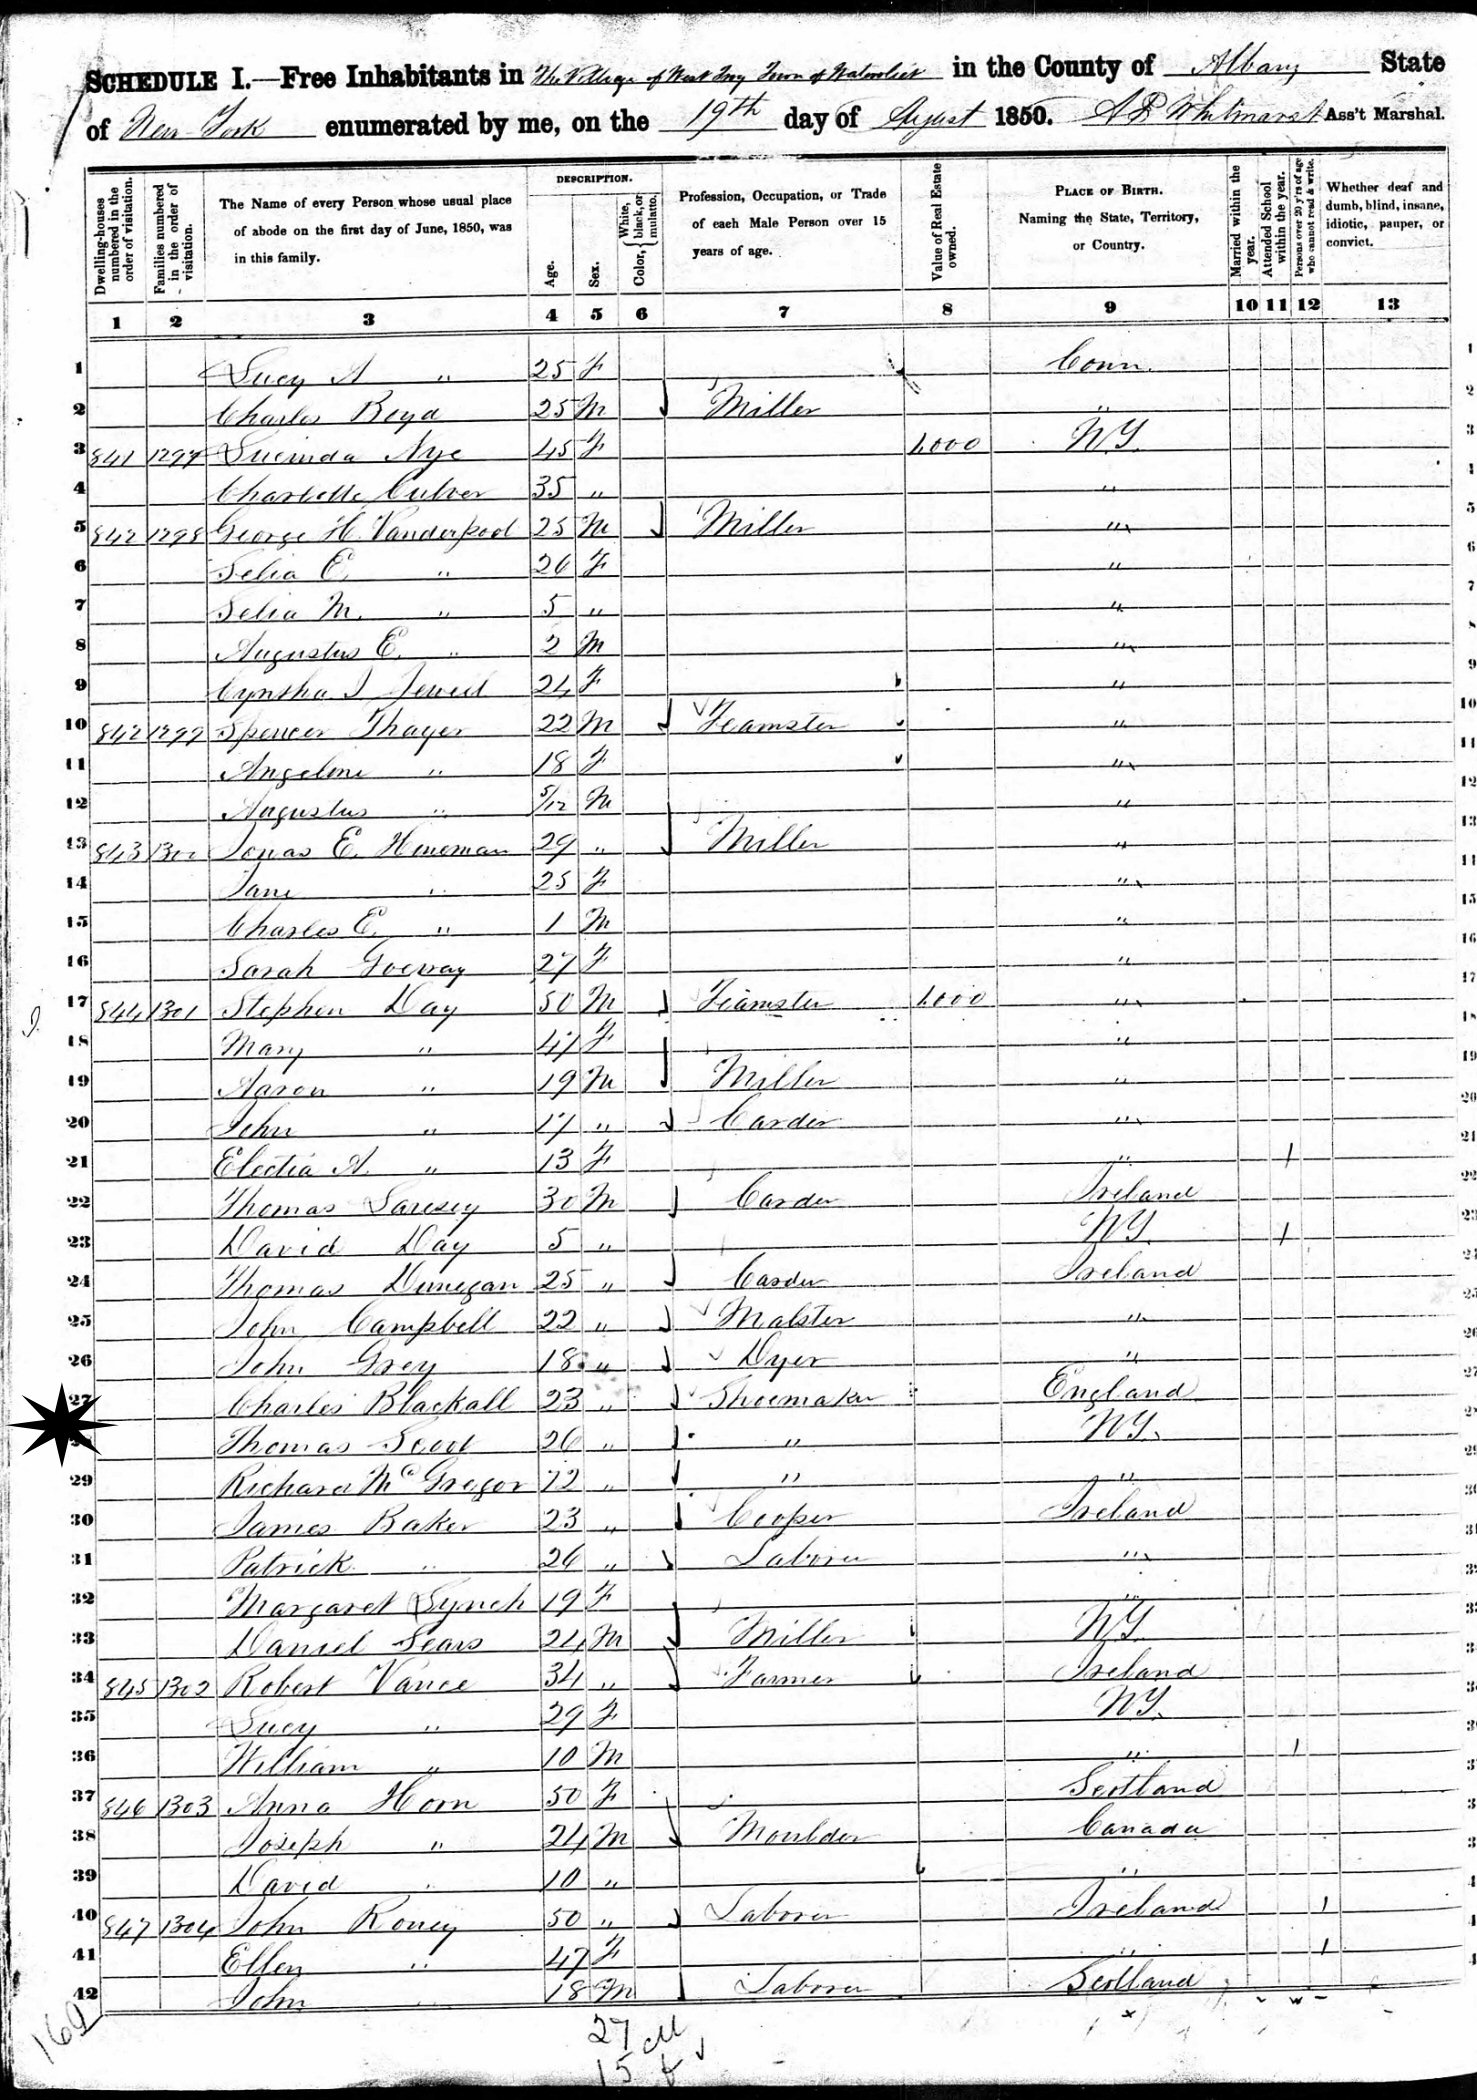 SCHEDULE I.—Free Inhabitants in The Village of West Troy Town of Watervliet in the County of Albany State
of New York enumerated by me, on the 19th day of August 1850. Ass't Marshal.
Dwelling-houses numbered in the order of visitation.
Families numbered in the order of visitation.
The Name of every Person whose usual place of abode on the first day of June, 1850, was in this family.
DESCRIPTION.
Age.
Sex.
Color, { White, black, or mulatto.
Profession, Occupation, or Trade of each Male Person over 15 years of age.
Value of Real Estate owned.
PLACE OF BIRTH. Naming the State, Territory, or Country.
Married within the year.
Attended School within the year.
Persons over 20 y'rs of age who cannot read & write.
Whether deaf and dumb, blind, insane, idiotic, pauper, or convict.
1 2 3 4 5 6 7 8 9 10 11 12 13
1 Lucy A " 25 F Conn.
2 Charles Boyd 25 M Miller "
3 841 1297 Lucinda Nye 45 F 1,000 NY.
4 Charlotte Culver 35 " "
5 842 1298 George H. Vanderpool 25 M Miller "
6 Selia E. " 26 F "
7 Selia M. " 5 " "
8 Augustus E. " 2 M "
9 Cyntha J Jewell 24 F "
10 842 1299 Spencer Thayer 22 M Teamster "
11 Angeline " 18 F "
12 Augustus " 5/12 M "
13 843 1300 Jonas E. Hineman 29 " Miller "
14 Jane " 25 F "
15 Charles E. " 1 M "
16 Sarah 27 F "
17 844 1301 Stephen Day 50 M Teamster 1,000 "
18 Mary " 47 F "
19 Aaron " 19 M Miller "
20 John " 17 " Carder "
21 Electia A. " 13 F " 1
22 Thomas 30 M Carder Ireland
23 David Day 5 " NY. 1
24 Thomas Dunegan 25 " Carder Ireland
25 John Campbell 22 " Malster "
26 John Grey 18 " Dyer "
27 Charles Blackall 23 " Shoemaker England
Thomas Scoot 26 " " NY.
29 Richard McGregor 22 " " "
30 James Baker 23 " Cooper Ireland
31 Patrick " 26 " Laborer "
32 Margaret Lynch 19 F "
33 Daniel Sears 24 M Miller NY
34 845 1302 Robert Vance 34 " Farmer Ireland
35 Lucy " 29 F NY.
36 William " 10 M " 1
37 846 1303 Anna Horn 50 F Scotland
38 Joseph " 24 M Moulder Canada
39 David " 10 " "
40 847 1304 John Roney 50 " Laborer Ireland 1
41 Ellen " 47 F " 1
42 John " 18 M Laborer Scotland
160
27 M
15 f